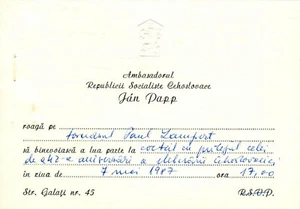 Ambasadorul
Republicii Socialiste Cehoslovace
Ján Papp
roagă pe
tovarășul Paul Lampert
să binevoiască a lua parte la cocteil cu prilejul celei
de a 42-a aniversări a eliberării Cehoslovaciei
în ziua de 7 mai 1987 ora 17,00
Str. Galați nr. 45
R.S.V.P.